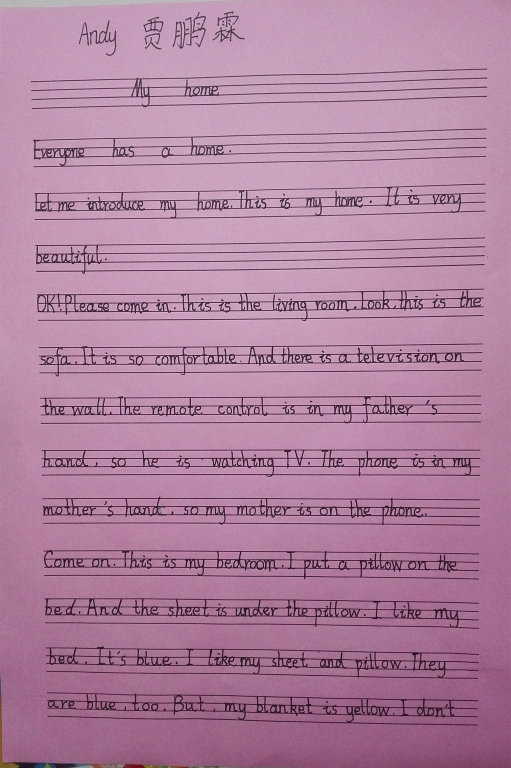 Andy 贾鹏霖
My home
Everyone has a home.
Let me introduce my home. This is my home. It is very
beautiful.
OK! Please come in. This is the living room. Look, this is the
sofa. It is so comfortable. And there is a television on
the wall. The remote control is in my father's
hand, so he is watching TV. The phone is in my
mother's hand, so my mother is on the phone.
Come on. This is my bedroom. I put a pillow on the
bed. And the sheet is under the pillow. I like my
bed. It's blue. I like my sheet and pillow. They
are blue, too. But, my blanket is yellow. I don't